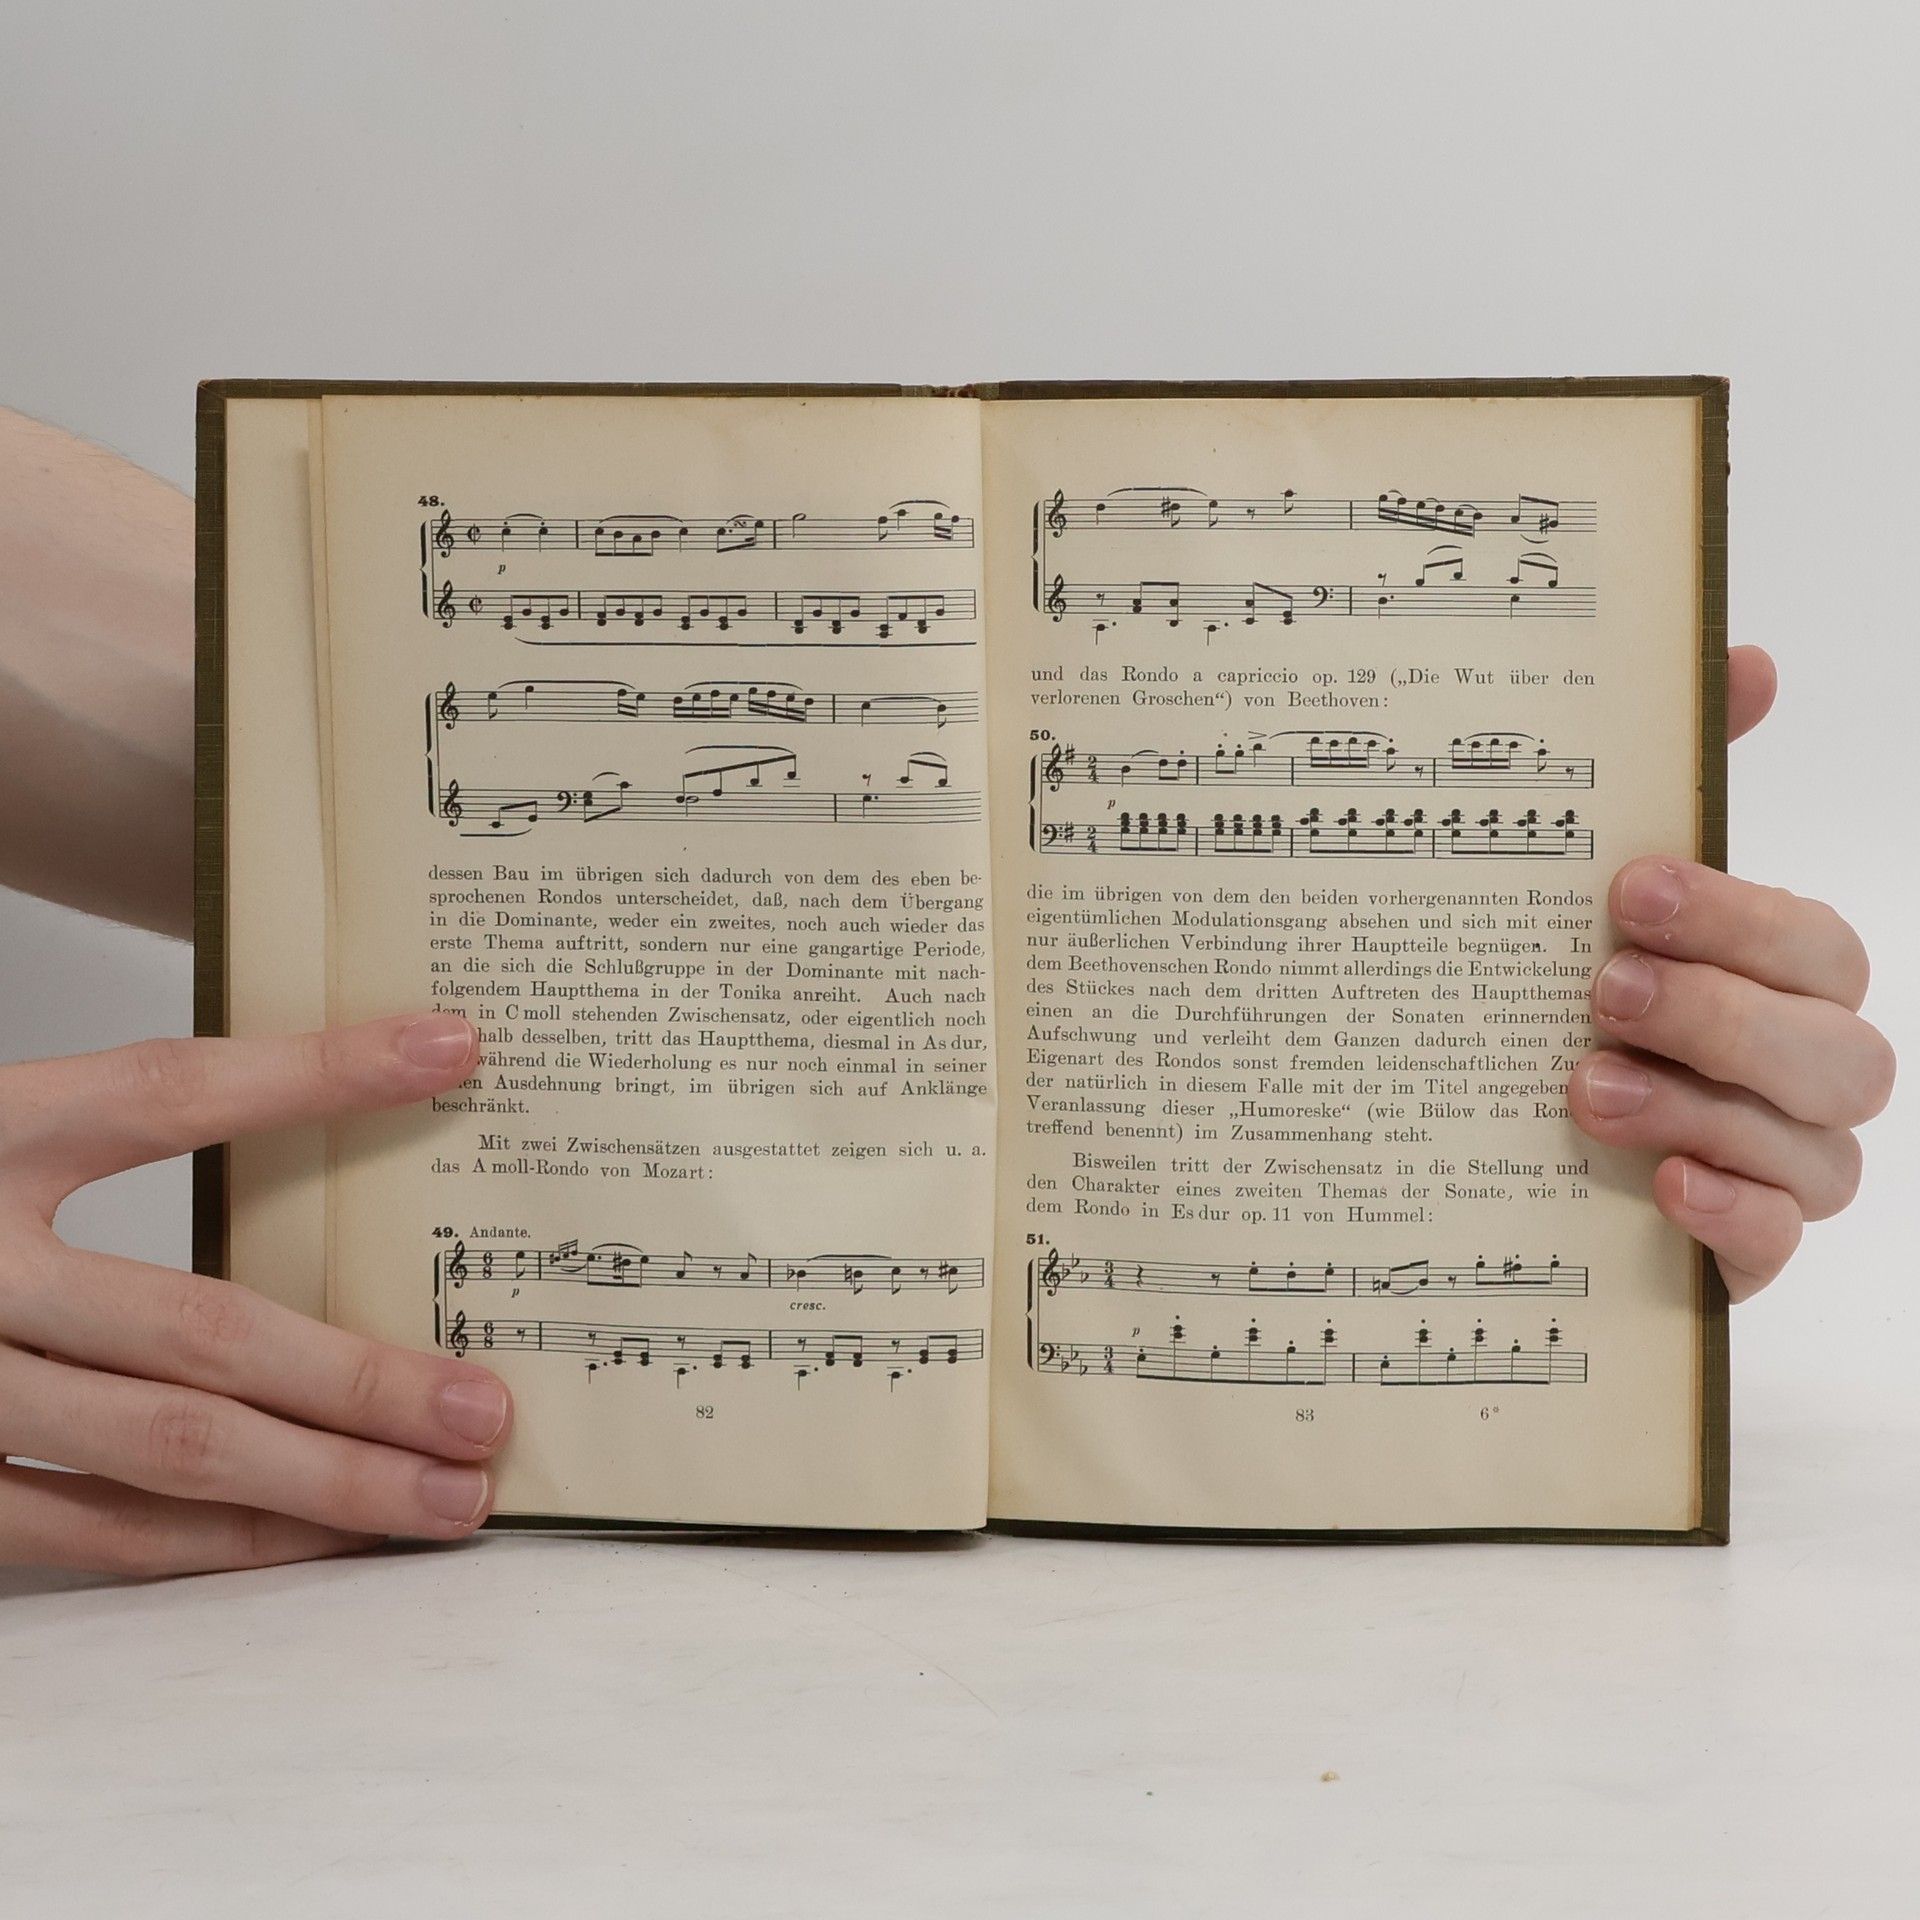 48.
p
dessen Bau im übrigen sich dadurch von dem des eben be-
sprochenen Rondos unterscheidet, daß, nach dem Übergang
in die Dominante, weder ein zweites, noch auch wieder das
erste Thema auftritt, sondern nur eine gangartige Periode,
an die sich die Schlußgruppe in der Dominante mit nach-
folgendem Hauptthema in der Tonika anreiht. Auch nach
dem in C moll stehenden Zwischensatz, oder eigentlich noch
halb desselben, tritt das Hauptthema, diesmal in As dur,
während die Wiederholung es nur noch einmal in seiner
Ausdehnung bringt, im übrigen sich auf Anklänge
beschränkt.
Mit zwei Zwischensätzen ausgestattet zeigen sich u. a.
das A moll-Rondo von Mozart:
49. Andante.
p
cresc.
82
und das Rondo a capriccio op. 129 („Die Wut über den
verlorenen Groschen“) von Beethoven:
50.
p
die im übrigen von dem den beiden vorhergenannten Rondos
eigentümlichen Modulationsgang absehen und sich mit einer
nur äußerlichen Verbindung ihrer Hauptteile begnügen. In
dem Beethovenschen Rondo nimmt allerdings die Entwickelung
des Stückes nach dem dritten Auftreten des Hauptthemas
einen an die Durchführungen der Sonaten erinnernden
Aufschwung und verleiht dem Ganzen dadurch einen der
Eigenart des Rondos sonst fremden leidenschaftlichen
der natürlich in diesem Falle mit der im Titel
Veranlassung dieser „Humoreske“ (wie Bülow das
treffend benennt) im Zusammenhang steht.
Bisweilen tritt der Zwischensatz in die Stellung und
den Charakter eines zweiten Themas der Sonate, wie in
dem Rondo in Es dur op. 11 von Hummel:
51.
p
83 6*